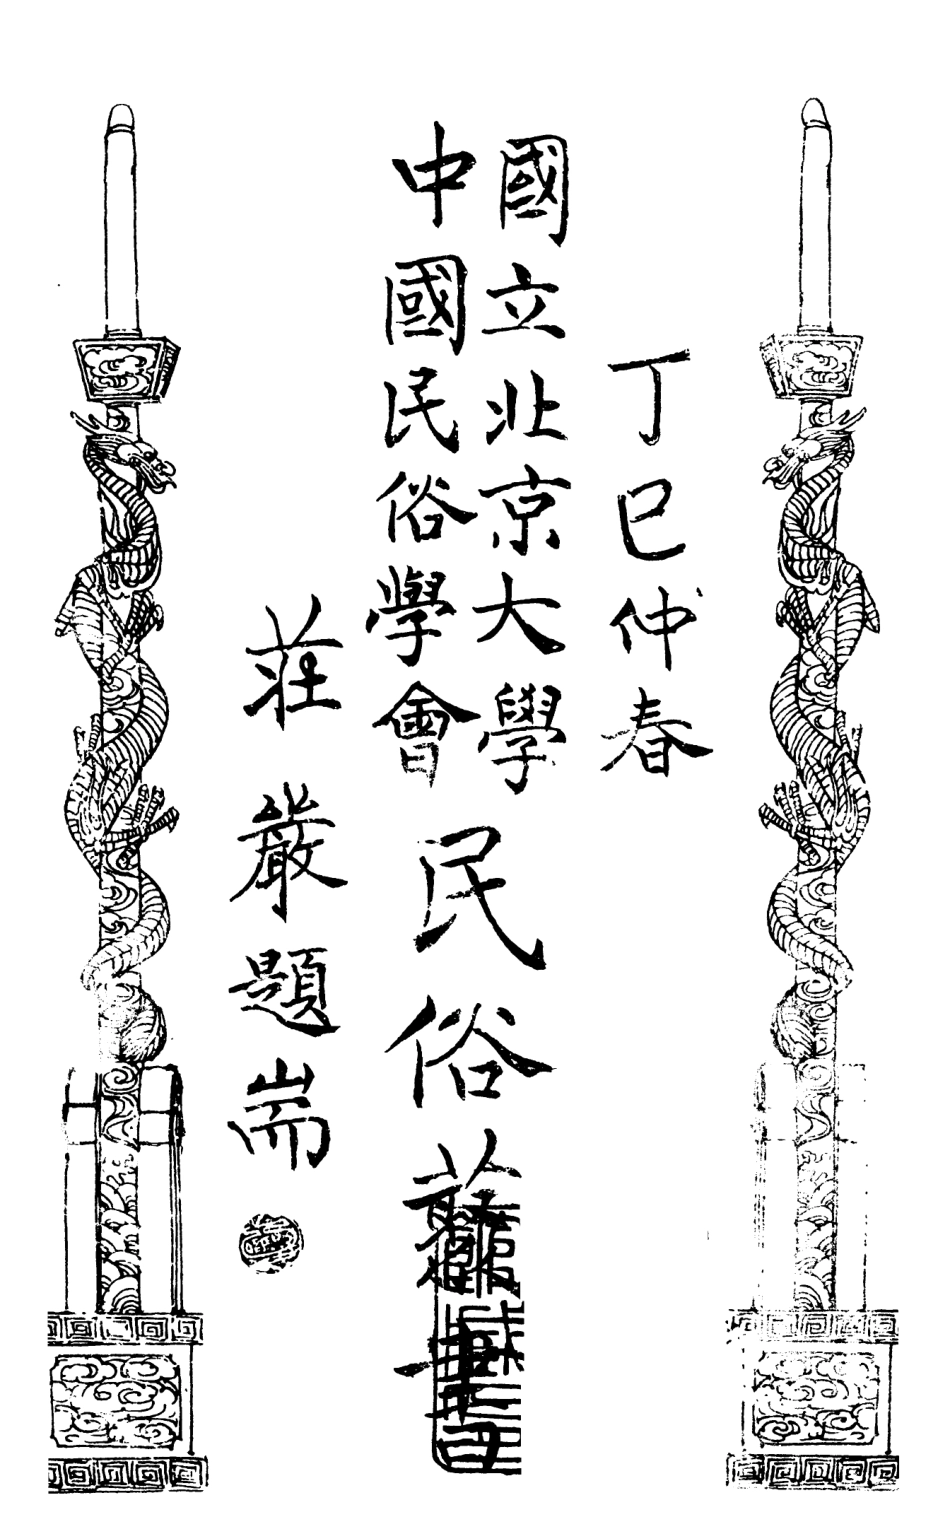 丁巳仲春
國立北京大學
中國民俗學會
民俗叢書
莊嚴題耑